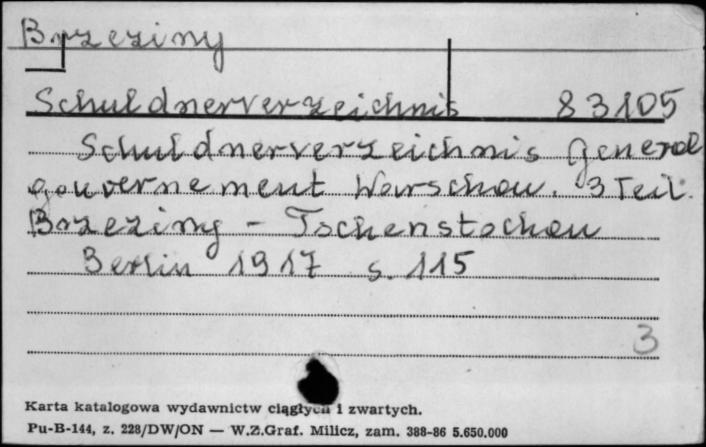 Brzeziny
Schuldnerverzeichnis 83105
Schuldnerverzeichnis General
gouvernement Warschau. 3 Teil.
Brzeziny - Tschenstochau
Berlin 1917 s. 115
3
Karta katalogowa wydawnictw ciągłych i zwartych.
Pu-B-144, z. 228/DW/ON — W.Z.Graf. Milicz, zam. 388-86 5.650.000